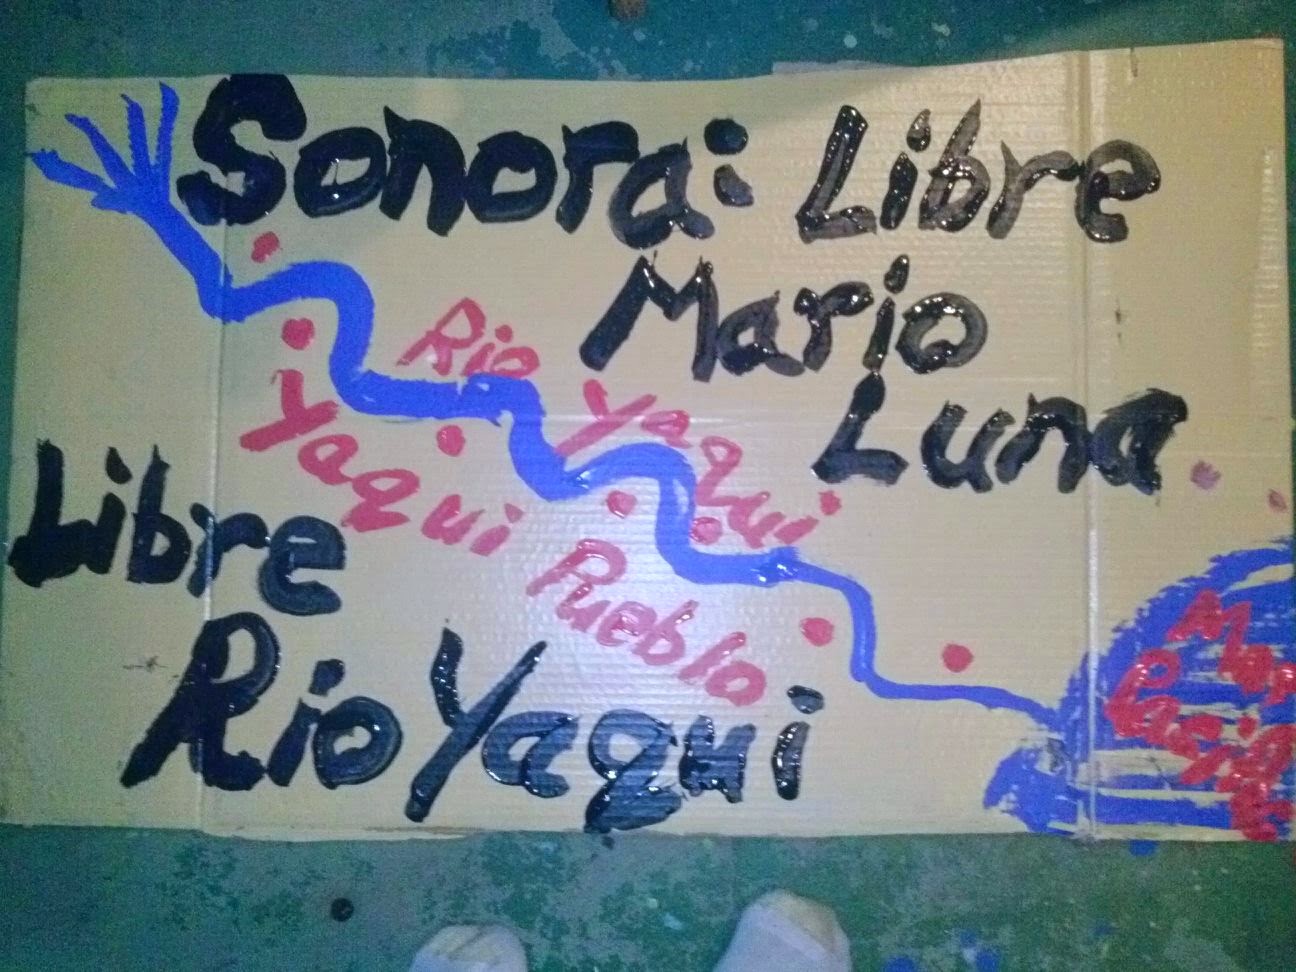 Sonora: Libre
Mario
Luna
Rio Yaqui
Yaqui
Pueblo
Libre
Rio Yaqui
Mar